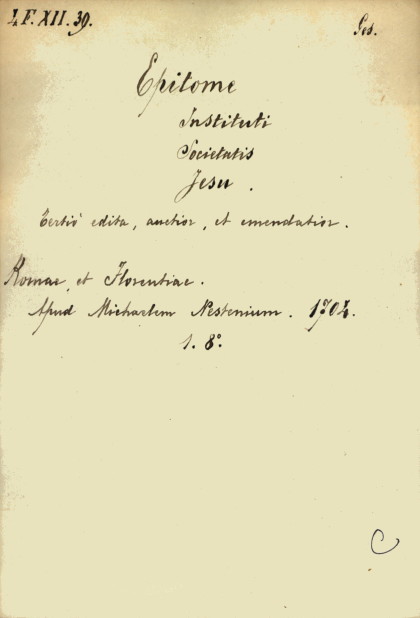 I F. XII. 39.
Ges.
Epitome
Instituti
Societatis
Jesu .
Tertiò edita, auctior, et emendatior.
Romae, et Florentiae.
Apud Michaelem Nestenium.
1. 8°.
C